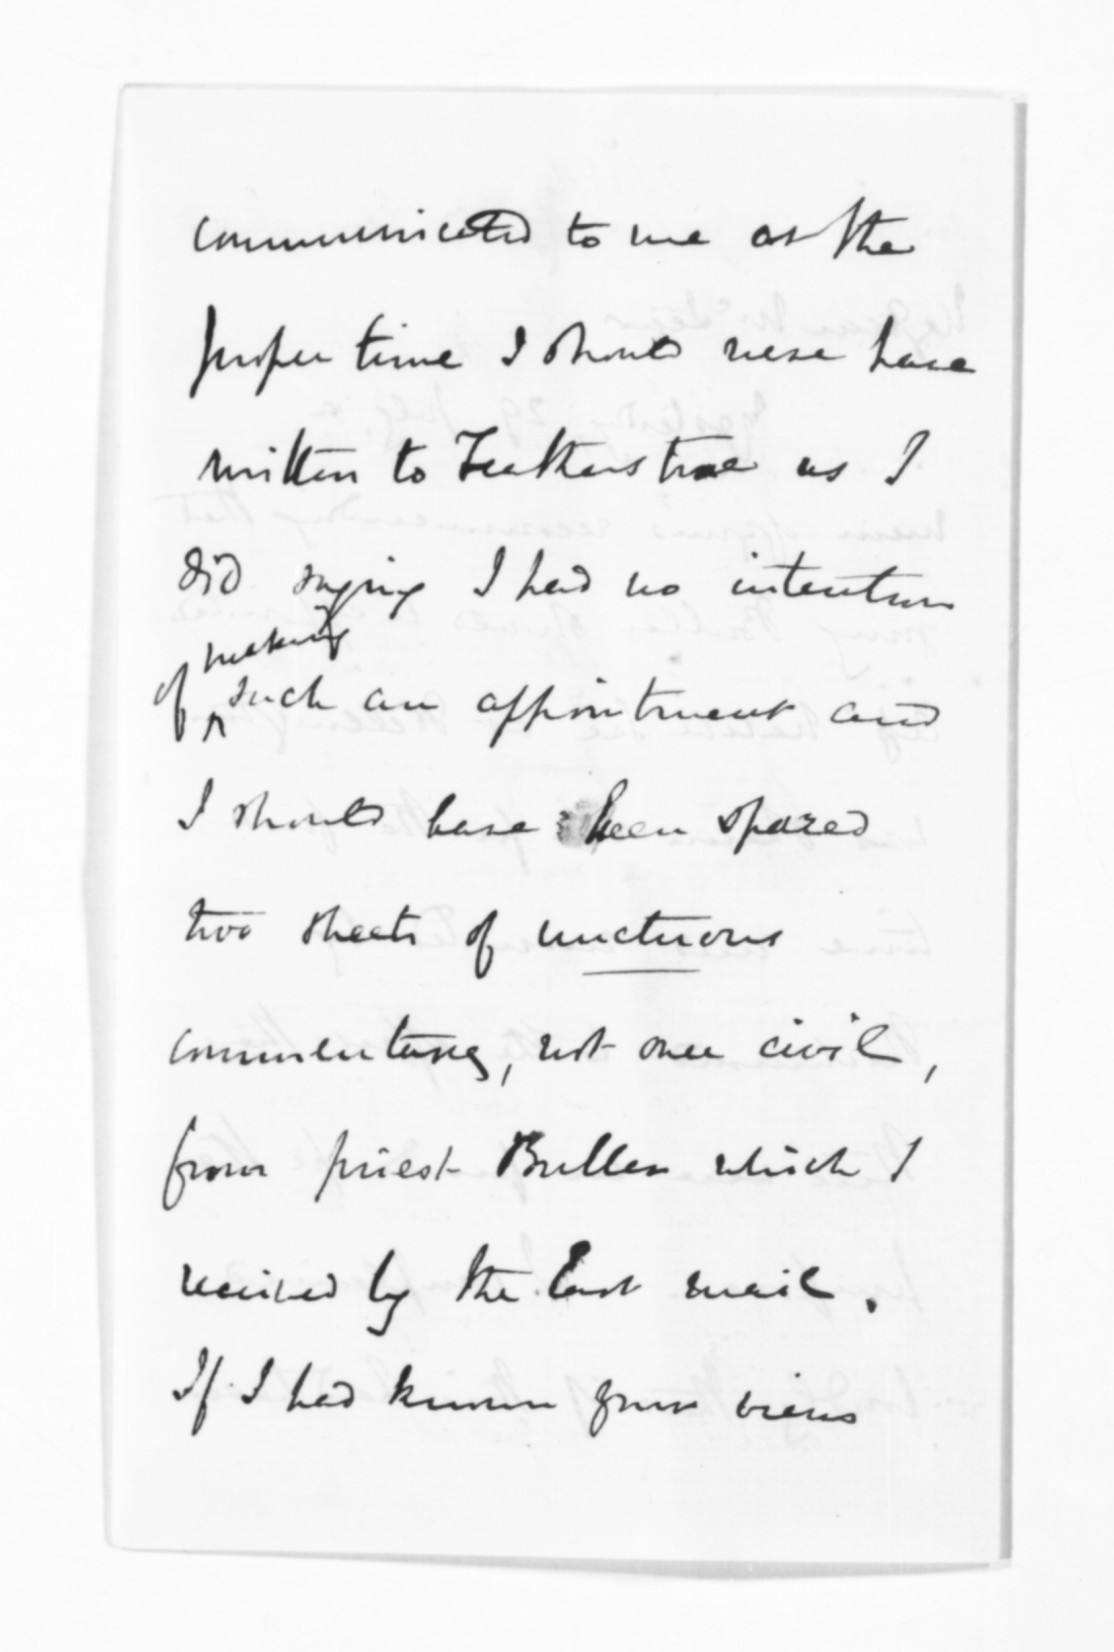 communicated to me at the
proper time I should never have
written to Featherstone as I
did saying I had no intention
making
of such an appointment and
I should have been spared
two sheets of unctuous
commentary, not over civil,
from priest Buller which I
received by the last mail.
If I had known your views